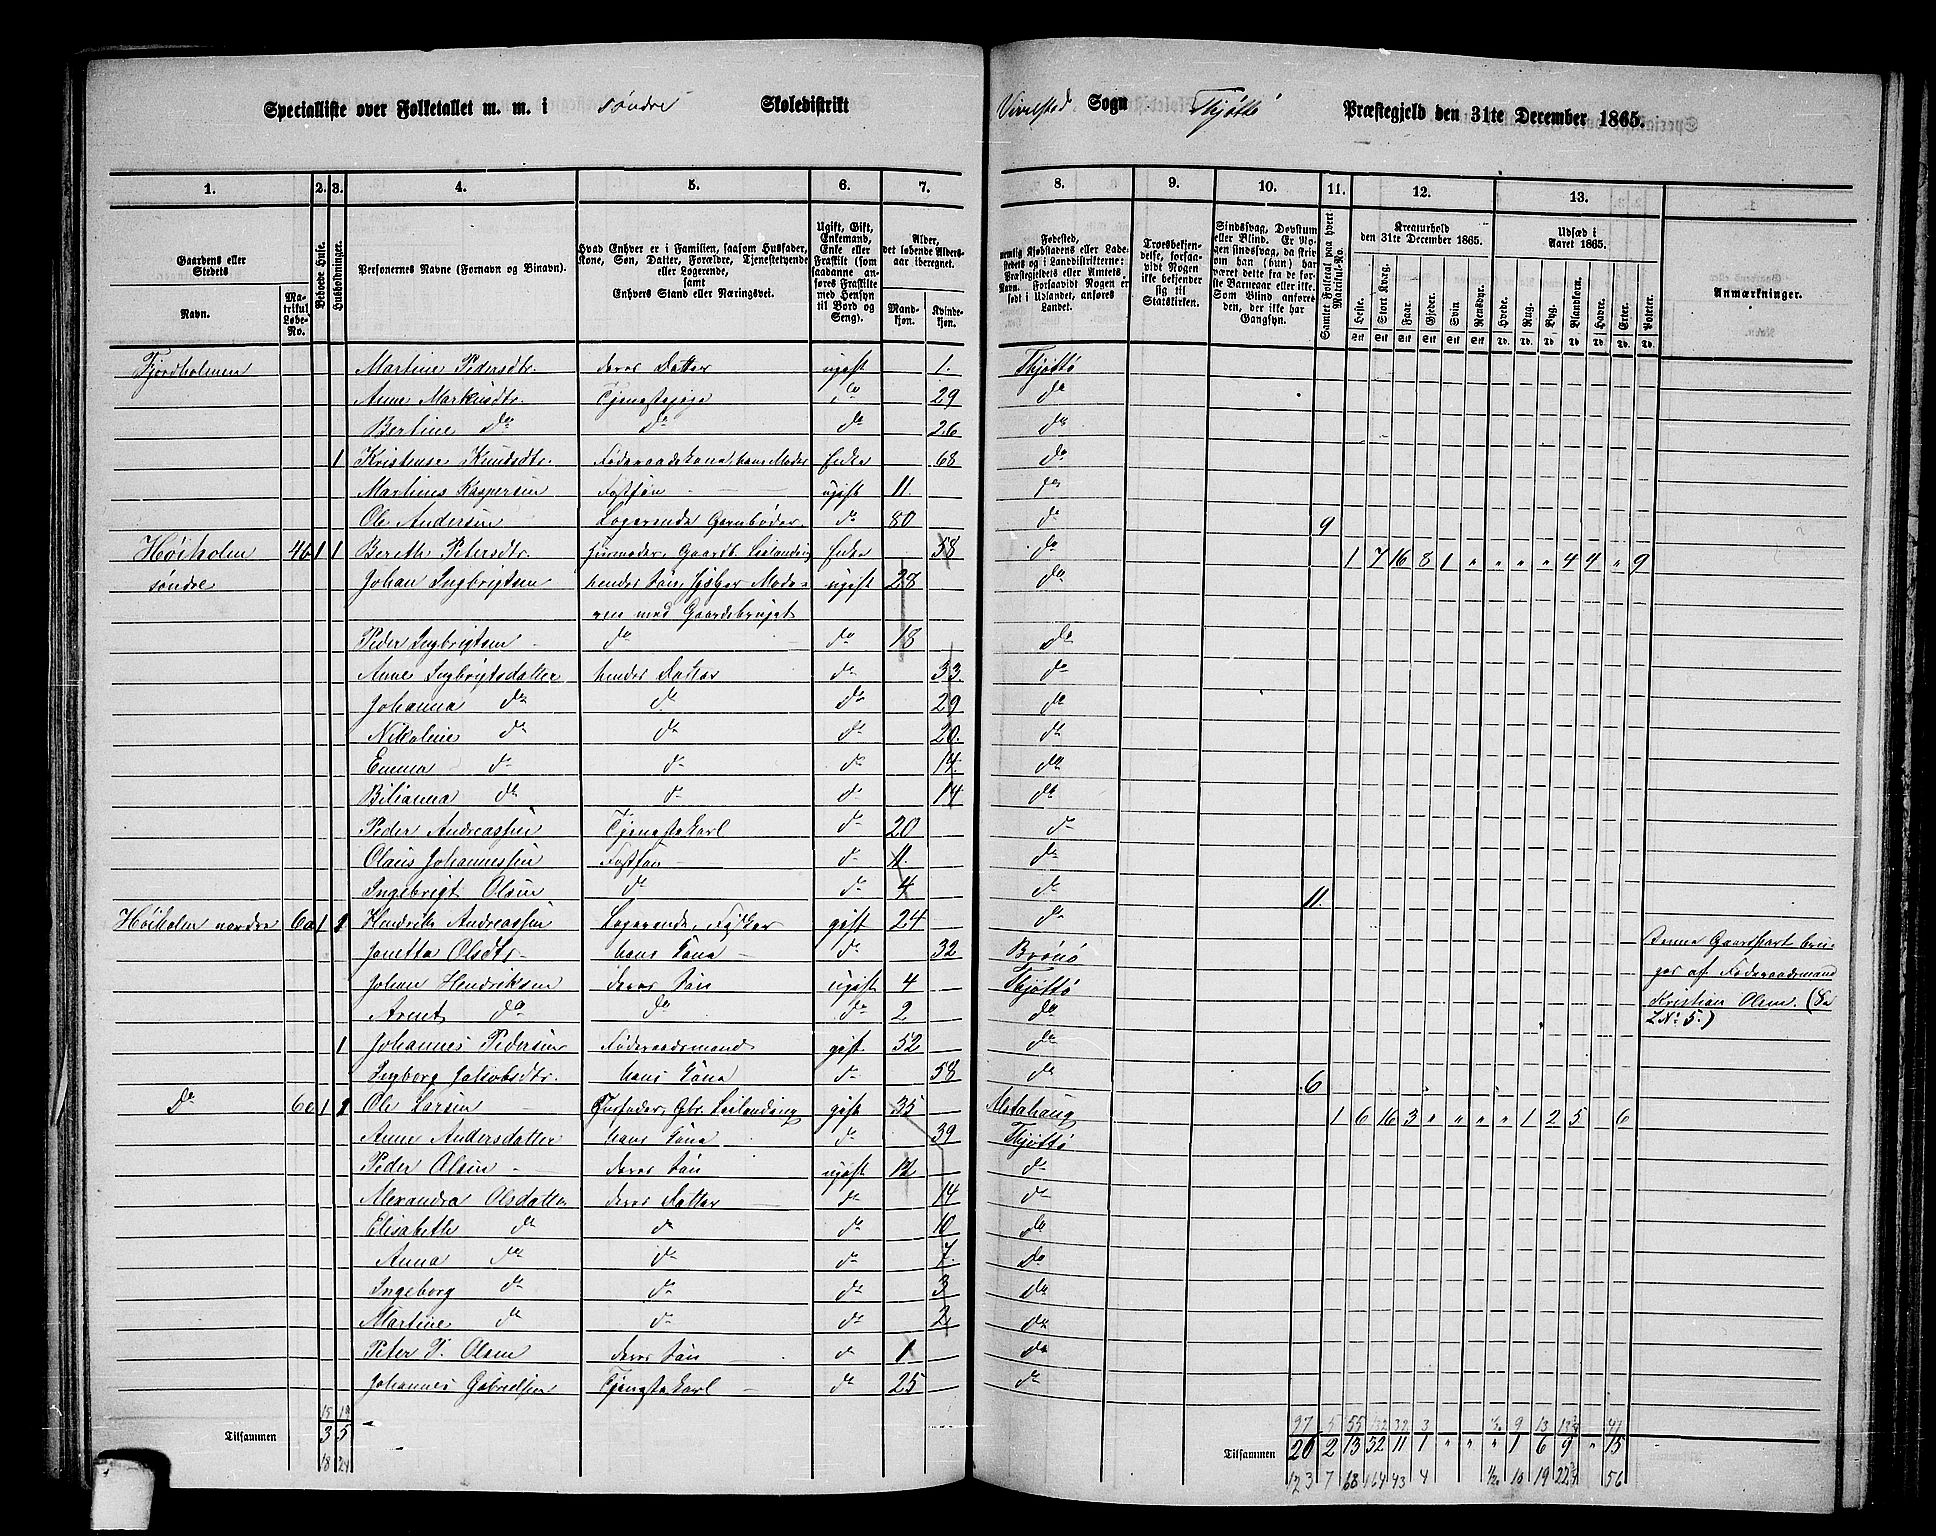 Specialliste over Folketallet m. m. i søndre Skoledistrikt
Vivelstad Sogn Thjøttø Præstegjeld den 31te December 1865.
1. 2. 3. 4. 5. 6. 7. 8. 9. 10. 11. 12. 13.
Gaardens eller Stedets
Navn. Matrikul Løbe-No.
Beboede Huse.
Husholdninger.
Personernes Navne (Fornavn og Binavn).
Hvad Enhver er i Familien, saasom Husfader, Kone, Søn, Datter, Forældre, Tjenestetyende eller Logerende, samt Enhvers Stand eller Næringsvei.
Ugift, Gift, Enkemand, Enke eller Fraskilt (som saadanne anføres Fraskilte med Hensyn til Bord og Seng).
Alder, det løbende Alders-aar iberegnet.
Mand-kjøn. Kvinde-kjøn.
Fødested,
Troesbekjendelse, forsaavidt Nogen ikke bekjender sig til Statskirken.
Samlet Folketal paa hvert Matrikul-No.
Kreaturhold den 31te December 1865.
Heste. Stort Kvæg. Faar. Gjeder. Svin Rensdyr.
Udsæd i Aaret 1865.
Hvede. Rug. Byg. Blandkorn. Havre. Erter. Poteter.
Anmærkninger.
Fjordholmen Martine Pedersdtr. deres Datter ugift 1. Thjøttø
Anne Markusdtr. Tjenestepige do 29 do
Bertine do do do 26 do
1 Kristense Knudsdtr. Føderaadskone, hans Moder Enke 68 do
Martines Kaspersen Fostsøn ugift 11. do
Ole Andersen Logerende Garnbøder do 80 do 9
Høiholm 4b 1 1 Berith Petersdtr. Husmoder, Gaardb. Leilending Enke 58 do 1 7 16 8 1 " " " " 4 4 " 9
søndre Johan Ingbrigtsen hendes Søn, hjelper Mode- ugift 28 do
ren med Gaardsbruget
Peder Ingbrigtsen do do 18 do
Anne Ingbrigtsdatter hendes Datter do 33. do
Johanna do do do 29 do
Nikoline do do do 20. do
Emma do do do 14 do
Bilianna do do do 14 do
Peder Andreassen Tjenestekarl do 20 do
Olaus Johannessen Fostsøn do 11. do
Ingebrigt Olsen do do 4 do 11.
Høiholm nordre 6a 1 1 Hendrik Andreassen Logerende, Fisker gift 24 do
Janetta Olsdtr. hans Kone do 32 Brønø Denne Gaardpart bru-
Johan Hendriksen deres Søn ugift 4 Thjøttø ges af Føderaadsmand
Arnet do do do 2 do Kristian Olsen. (Se
LNo 5.)
1 Johannes Pedersen Føderaadsmand gift 52 do
Ingborg Jakobsdtr. hans Kone do 58 do 6
do 6c 1 1 Ole Larsen Husfader, Gbr. Leilending gift 35 Alstahaug 1 6 16 3 " " " " 1 2 5 6
Anne Andersdatter hans Kone do 39 Thjøttø
Peder Olsen deres Søn ugift 12 do
Alexandra Olsdatter deres Datter do 14 do
Elisabeth do do do 10 do
Anna do do do 7. do
Ingeborg do do do 3 do
Martine do do do 2 do
Peter P. Olsen deres Søn do 1 do
Johannes Gabrielsen Tjenestekarl do 25 do
15 19
Tilsammen 3 5
18 24
97 5 55 132 32 3 9 13 41
Tilsammen 26 2 13 32 11 1 " " " 1 6 9 " 15
123 7 68 164 43 4 10 19 56